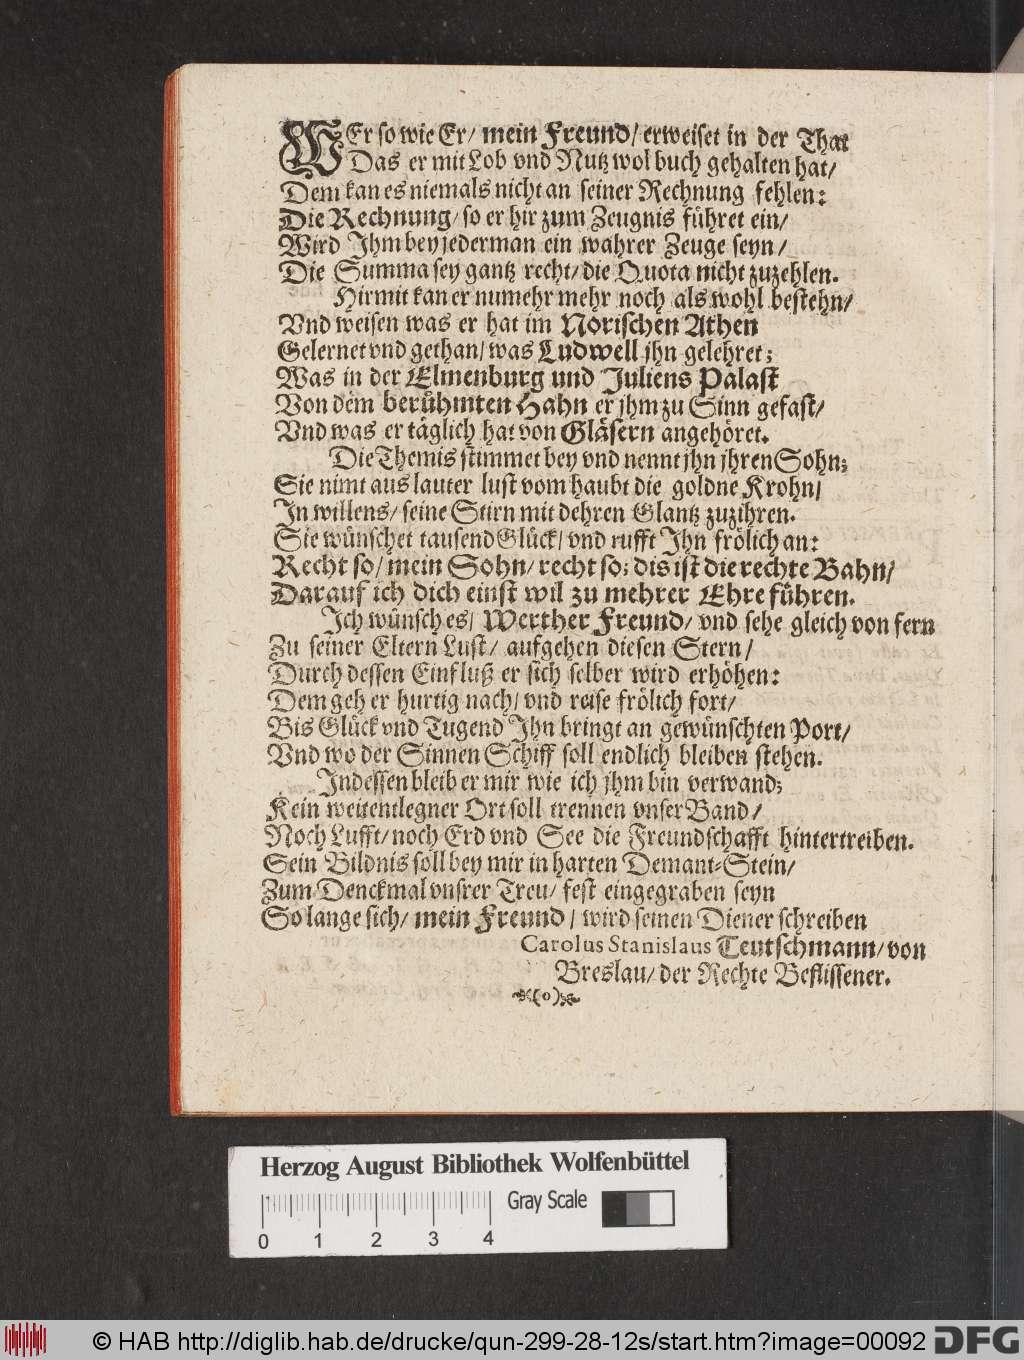 WEr so wie Er/ mein Freund/ erweiset in der That
Das er mit Lob vnd Nutz wol buch gehalten hat/
Dem kan es niemals nicht an seiner Rechnung fehlen:
Die Rechnung/ so er hir zum Zeugnis führet ein/
Wird Jhm bey jederman ein wahrer Zeuge seyn/
Die Summa sey gantz recht/ die Quota nicht zuzehlen.
Hirmit kan er numehr mehr noch als wohl bestehn/
Vnd weisen was er hat im Norischen Athen
Gelernet vnd gethan/ was Ludwell jhn gelehret;
Was in der Elmenburg und Juliens Palast
Von dem berühmten Hahn er jhm zu Sinn gefast/
Vnd was er täglich hat von Gläsern angehöret.
Die Themis stimmet bey vnd nennt jhn jhren Sohn;
Sie nimt aus lauter lust vom haubt die goldne Krohn/
Jn willens/ seine Stirn mit dehren Glantz zuzihren.
Sie wünschet tausend Glück/ vnd rufft Jhn frölich an:
Recht so/ mein Sohn/ recht so; dis ist die rechte Bahn/
Darauf ich dich einst wil zu mehrer Ehre führen.
Jch wünsch es/ Werther Freund/ vnd sehe gleich von fern
Zu seiner Eltern Lust/ aufgehen diesen Stern/
Durch dessen Einfluß er sich selber wird erhöhen:
Dem geh er hurtig nach/ vnd reise frölich fort/
Bis Glück vnd Tugend Jhn bringt an gewünschten Port/
Vnd wo der Sinnen Schiff soll endlich bleiben stehen.
Jndessen bleib er mir wie ich jhm bin verwand;
Kein weitentlegner Ort soll trennen vnser Band/
Noch Lufft/ noch Erd vnd See die Freundschafft hintertreiben.
Sein Bildnis soll bey mir in harten Demant-Stein/
Zum Denckmal vnsrer Treu/ fest eingegraben seyn
So lange sich/ mein Freund/ wird seinen Diener schreiben
Carolus Stanislaus Teutschmann/ von
Breslau/ der Rechte Beflissener.
(o)
Herzog August Bibliothek Wolfenbüttel
Gray Scale
0 1 2 3 4
© HAB http://diglib.hab.de/drucke/qun-299-28-12s/start.htm?image=00092 DFG